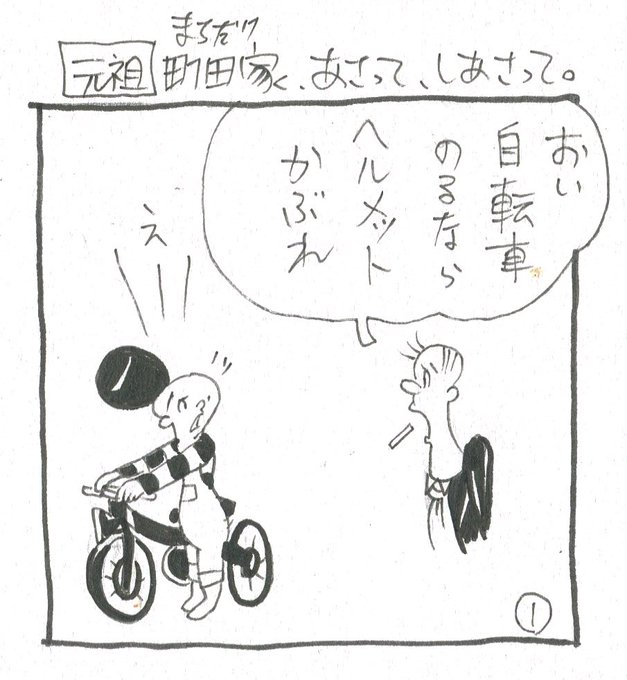 まちだけ
元祖 町田家、あさって、しあさって。
おい
自転車
のるなら
ヘルメット
かぶれ
え
1